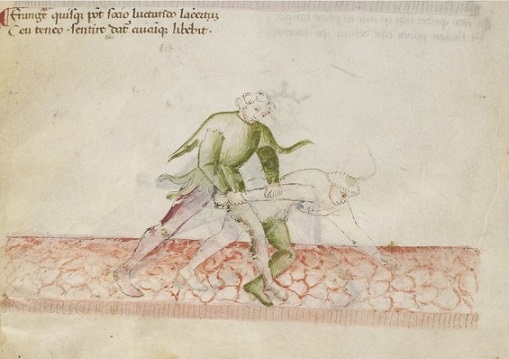 Frangē quisq; pōt socio luctando lacertuʒ
Ceu teneo · sentire dat̄ cuicūq; libebit ·